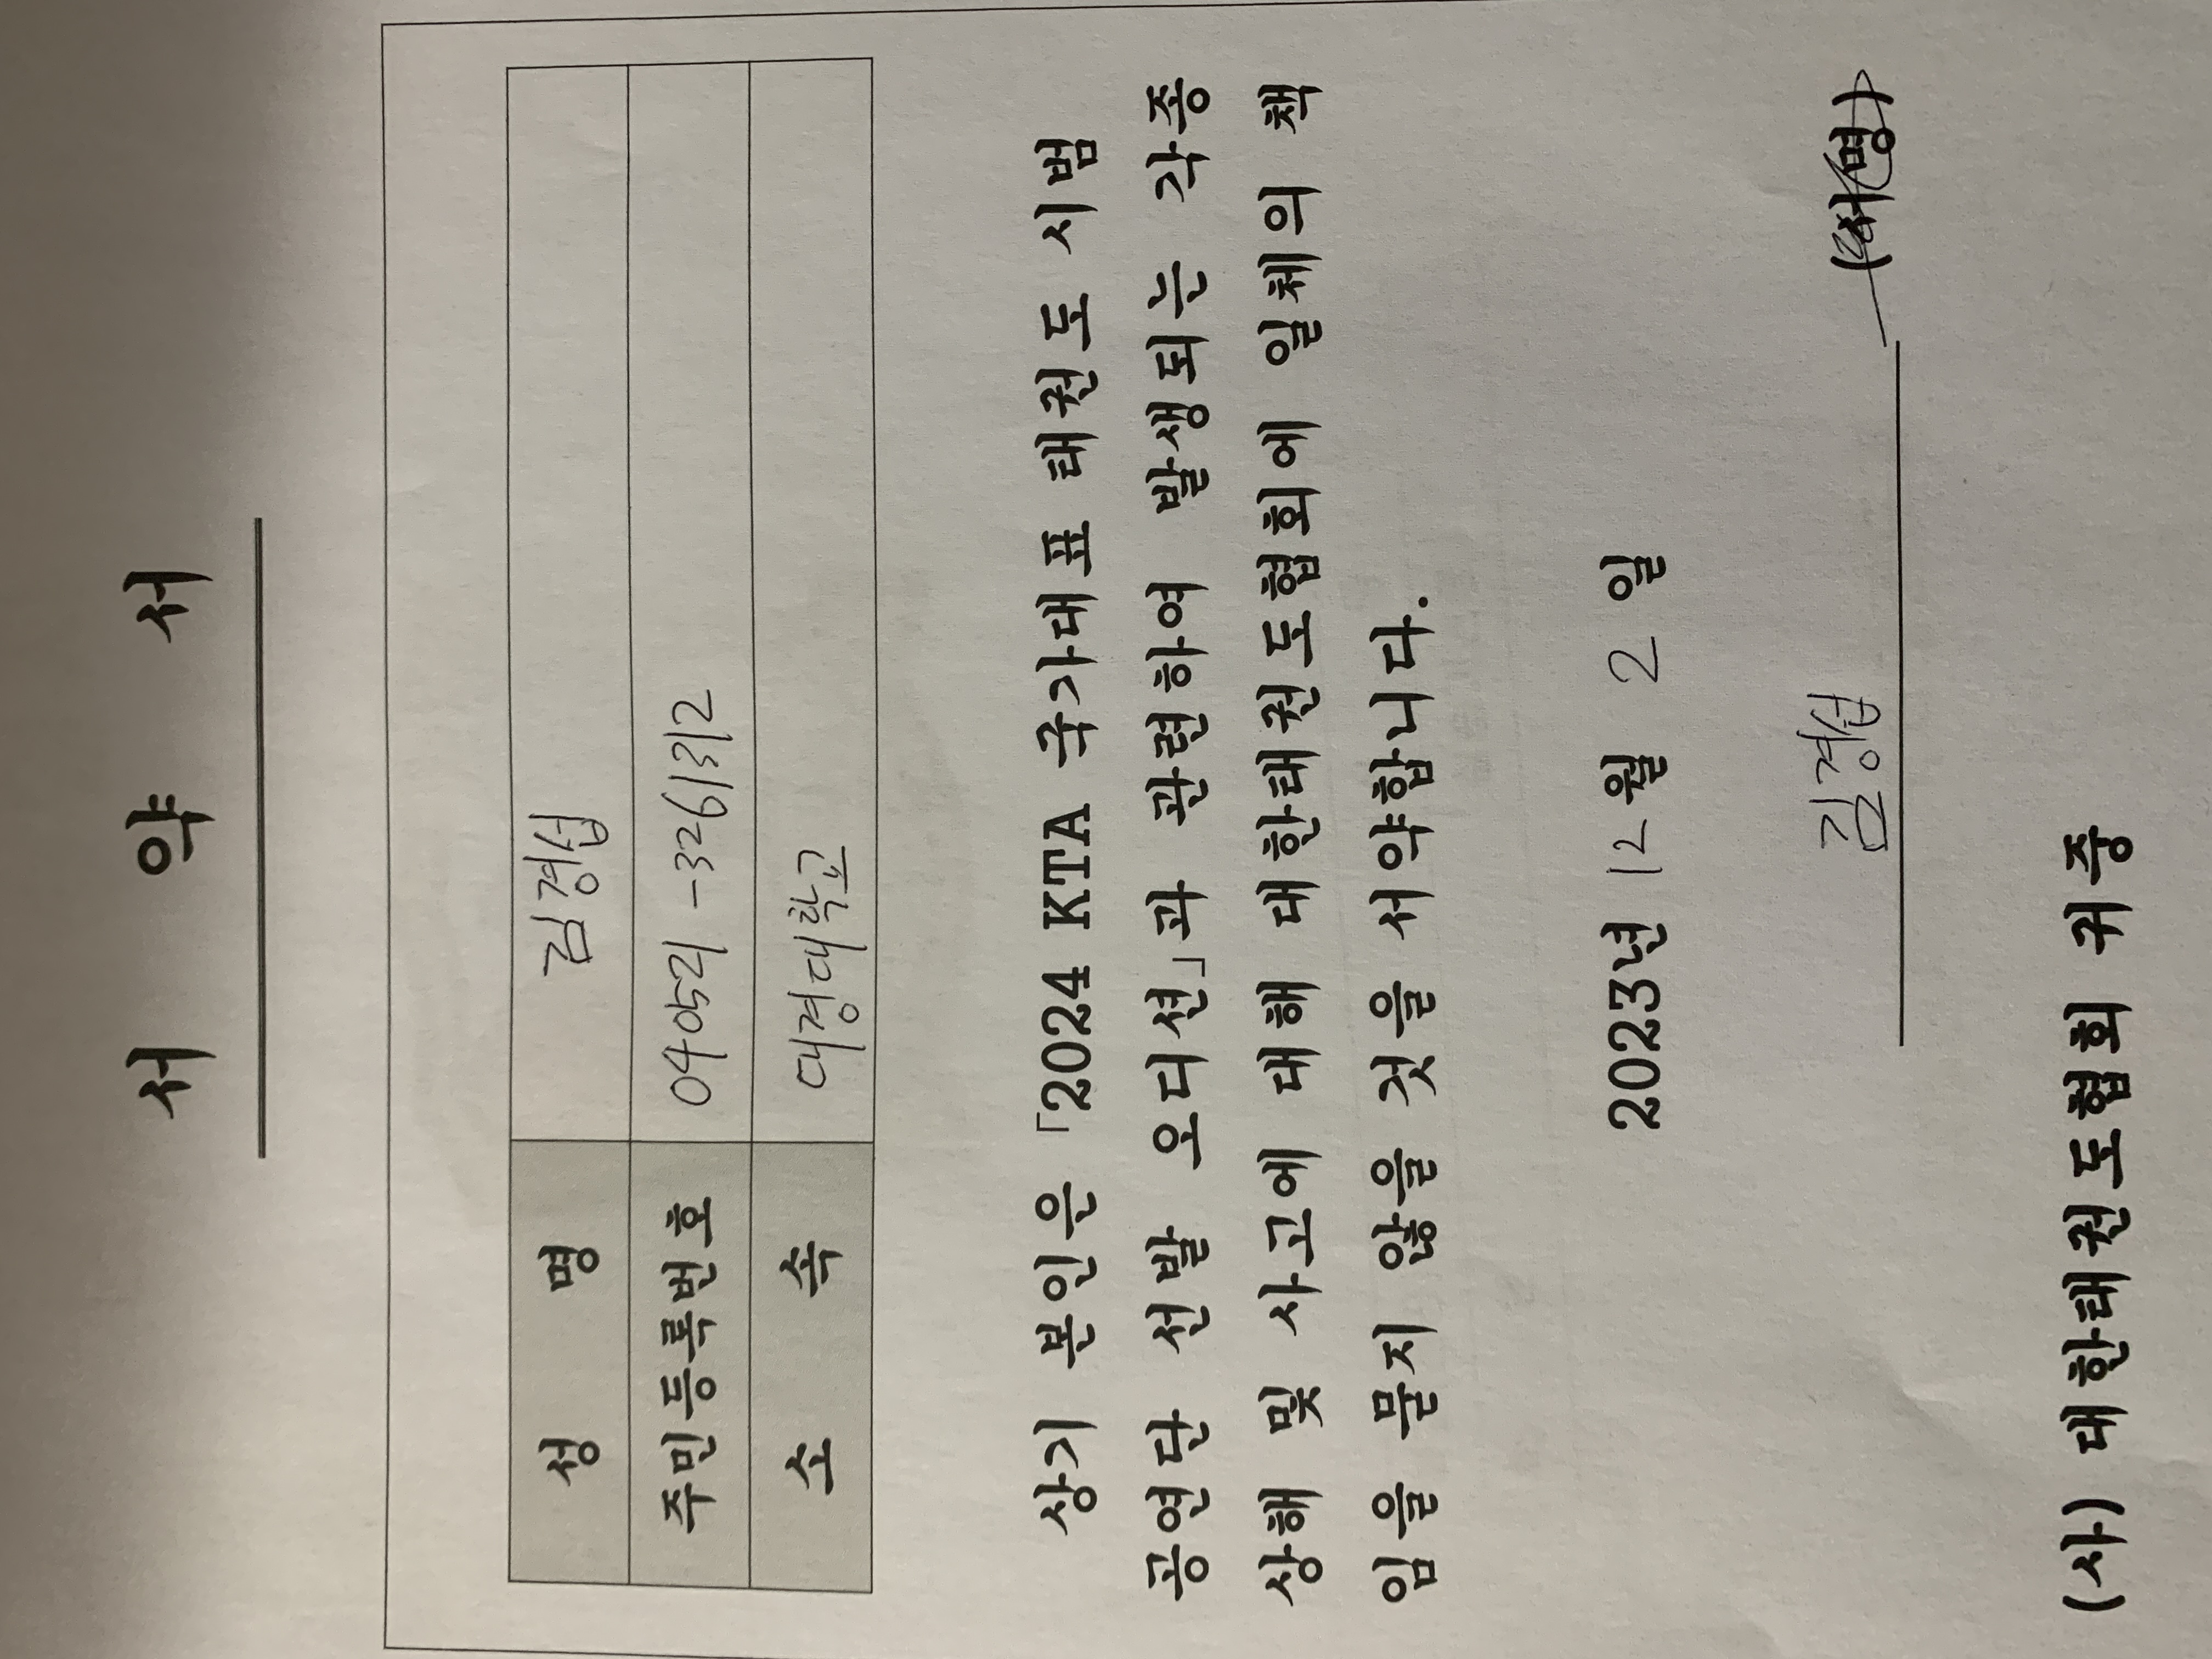 서 약 서
성 명 김경섭
주민등록번호 040521-3261312
소 속 대경대학교
상기 본인은 「2024 KTA 국가대표 태권도 시범
공연단 선발 오디션」과 관련하여 발생되는 각종
상해 및 사고에 대해 대한태권도협회에 일체의 책
임을 묻지 않을 것을 서약합니다.
2023년 12월 2일
김경섭 (서명)
(사) 대한태권도협회 귀중